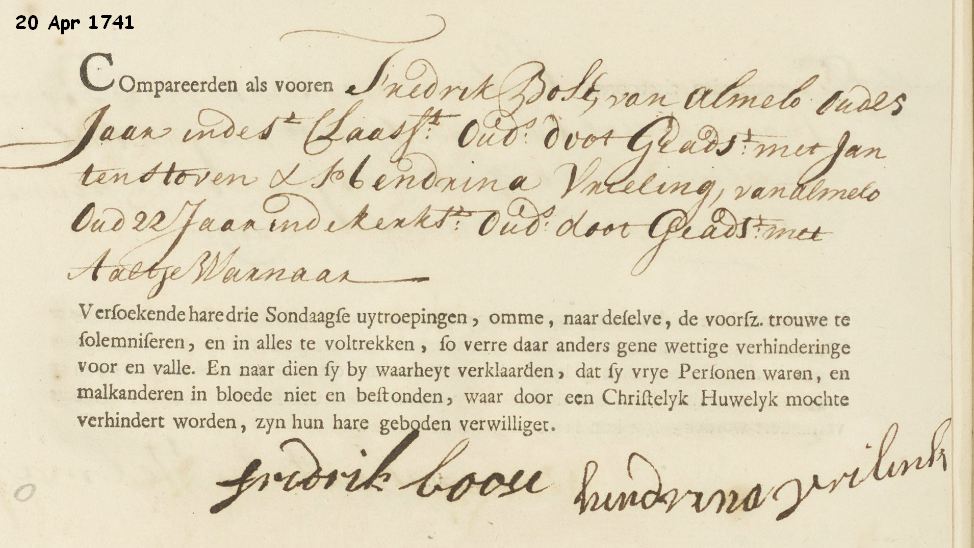 20 Apr 1741
COmpareerden als vooren Fredrik Bolt, van Almelo oud 25
Jaar in de st Claasst: Oud:s doot Geads:t met Jan
tenstoven & hendrina Vrieling, van almelo
Oud 22 Jaar in de kerkst: Oud:s doot Geads:t met
Aaltje Warnaar
Versoekende hare drie Sondaagse uytroepingen, omme, naar deselve, de voorsz. trouwe te
solemniseren, en in alles te voltrekken, so verre daar anders gene wettige verhinderinge
voor en valle. En naar dien sy by waarheyt verklaarden, dat sy vrye Personen waren, en
malkanderen in bloede niet en bestonden, waar door een Christelyk Huwelyk mochte
verhindert worden, zyn hun hare geboden verwilliget.
fridrik boose hendrina vrilink